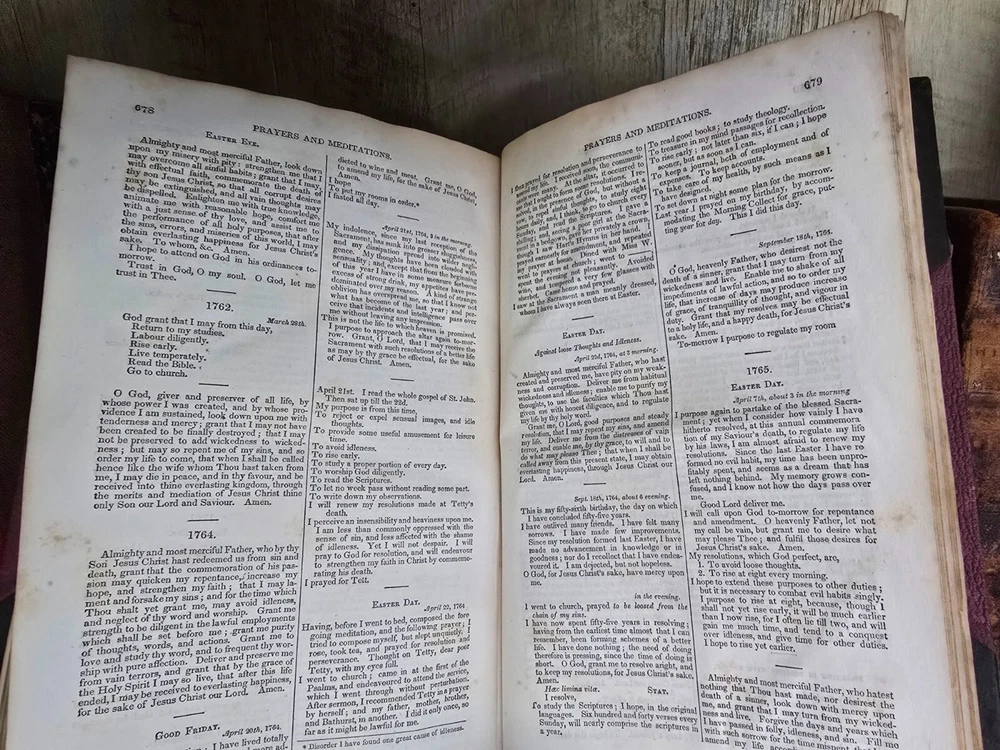 678
PRAYERS AND MEDITATIONS.
EASTER EVE.
Almighty and most merciful Father, look down
upon my misery with pity: strengthen me that I
may overcome all sinful habits; grant that I may,
with effectual faith, commemorate the death of
thy son Jesus Christ, so that all corrupt desires
may be extinguished, and all vain thoughts may
be dispelled. Enlighten me with true knowledge,
animate me with reasonable hope, comfort me
with a just sense of thy love, and assist me to
the performance of all holy purposes, that after
the sins, errors, and miseries of this world, I may
obtain everlasting happiness for Jesus Christ's
sake. To whom, &c. Amen.
I hope to attend on God in his ordinances to-
morrow.
Trust in God, O my soul. O God, let me
trust in Thee.
1762.
March 28th.
God grant that I may from this day,
Return to my studies.
Labour diligently.
Rise early.
Live temperately.
Read the Bible.
Go to church.
O God, giver and preserver of all life, by
whose power I was created, and by whose pro-
vidence I am sustained, look down upon me with
tenderness and mercy; grant that I may not have
been created to be finally destroyed; that I may
not be preserved to add wickedness to wicked-
ness; but may so repent me of my sins, and so
order my life to come, that when I shall be called
hence like the wife whom Thou hast taken from
me, I may die in peace, and in thy favour, and be
received into thine everlasting kingdom, through
the merits and mediation of Jesus Christ thine
only Son our Lord and Saviour. Amen.
1764.
Almighty and most merciful Father, who by thy
Son Jesus Christ hast redeemed us from sin and
death, grant that the commemoration of his pas-
sion may quicken my repentance, increase my
hope, and strengthen my faith; that I may la-
ment and forsake my sins; and for the time which
Thou shalt yet grant me, may avoid idleness,
and neglect of thy word and worship. Grant me
strength to be diligent in the lawful employments
which shall be set before me; grant me purity
of thoughts, words, and actions. Grant me to
love and study thy word, and to frequent thy wor-
ship with pure affection. Deliver and preserve me
from vain terrors, and grant that by the grace of
the Holy Spirit I may so live, that after this life
ended, I may be received to everlasting happiness,
for the sake of Jesus Christ our Lord. Amen.
GOOD FRIDAY. April 20th, 1764.
I have lived totally
dicted to wine and meat. Grant me, O God,
to amend my life, for the sake of Jesus Christ.
Amen.
I hope
To put my rooms in order.*
I fasted all day.
April 21st, 1764, 3 in the morning.
My indolence, since my last reception of the
Sacrament, has sunk into grosser sluggishness,
and my dissipation spread into wilder negli-
gence. My thoughts have been clouded with
sensuality; and, except that from the beginning
of this year I have in some measure forborne
excess of strong drink, my appetites have pre-
dominated over my reason. A kind of strange
oblivion has overspread me, so that I know not
what has become of the last year; and per-
ceive that incidents and intelligence pass over
me without leaving any impression.
This is not the life to which heaven is promised.
I purpose to approach the altar again to-mor-
row. Grant, O Lord, that I may receive the
Sacrament with such resolutions of a better life
as may by thy grace be effectual, for the sake
of Jesus Christ. Amen.
April 21st. I read the whole gospel of St. John.
Then sat up till the 22d.
My purpose is from this time,
To reject or expel sensual images, and idle
thoughts.
To provide some useful amusement for leisure
time.
To avoid idleness.
To rise early.
To study a proper portion of every day.
To worship God diligently.
To read the Scriptures.
To let no week pass without reading some part.
To write down my observations.
I will renew my resolutions made at Tetty's
death.
I perceive an insensibility and heaviness upon me.
I am less than commonly oppressed with the
sense of sin, and less affected with the shame
of idleness. Yet I will not despair. I will
pray to God for resolution, and will endeavour
to strengthen my faith in Christ by commemo-
rating his death.
I prayed for Tett.
EASTER DAY.
April 22, 1764
Having, before I went to bed, composed the fore
going meditation, and the following prayer; I
tried to compose myself, but slept unquietly. I
rose, took tea, and prayed for resolution and
perseverance. Thought on Tetty, dear poor
Tetty, with my eyes full.
I went to church; came in at the first of the
Psalms, and endeavoured to attend the service,
which I went through without perturbation.
After sermon, I recommended Tetty in a prayer
by herself; and my father, mother, brother,
and Bathurst, in another. I did it only once, so
far as it might be lawful for me.
* Disorder I have found one great cause of idleness.
679
PRAYERS AND MEDITATIONS.
I then prayed for resolution and perseverance to
amend my life. I received soon: the communi-
cants were many. At the altar, it occurred to
me that I ought to form some resolutions. I re-
to repel sinful thoughts,
to study eight hours daily, and, I think, to go to church every
Sunday, and read the Scriptures. I gave a
shilling; and seeing a poor girl at the Sacra-
ment in a bedgown, gave her privately a crown,
though I saw Hart's Hymns in her hand.
I prayed earnestly for amendment, and repeated
my prayer at home. Dined with Miss W.
went to prayers at church; went to
spent the evening not pleasantly. Avoided
wine, and tempered a very few glasses with
sherbet. Came home and prayed.
I saw at the Sacrament a man meanly dressed,
whom I have always seen there at Easter.
EASTER DAY.
Against loose Thoughts and Idleness.
April 22d, 1764, at 3 morning.
Almighty and most merciful Father, who hast
created and preserved me, have pity on my weak-
ness and corruption. Deliver me from habitual
wickedness and idleness; enable me to purify my
thoughts, to use the faculties which Thou hast
given me with honest diligence, and to regulate
my life by thy holy word.
Grant me, O Lord, good purposes and steady
resolution, that I may repent my sins, and amend
my life. Deliver me from the distresses of vain
terror, and enable me, by thy grace, to will and to
do what may please Thee; that when I shall be
called away from this present state, I may obtain
everlasting happiness, through Jesus Christ our
Lord. Amen.
Sept. 18th, 1764, about 6 evening.
This is my fifty-sixth birthday, the day on which
I have concluded fifty-five years.
I have outlived many friends. I have felt many
sorrows. I have made few improvements.
Since my resolution formed last Easter, I have
made no advancement in knowledge or in
goodness; nor do I recollect that I have endea-
voured it. I am dejected, but not hopeless.
O God, for Jesus Christ's sake, have mercy upon
me.
in the evening.
I went to church, prayed to be loosed from the
chain of my sins.
I have now spent fifty-five years in resolving;
having from the earliest time almost that I can
remember, been forming schemes of a better
life. I have done nothing; the need of doing
therefore is pressing, since the time of doing is
short. O God, grant me to resolve aright, and
to keep my resolutions, for Jesus Christ's sake.
Amen.
Hæc limina vitæ. STAT.
I resolve,
To study the Scriptures; I hope, in the original
languages. Six hundred and forty verses every
Sunday, will nearly comprise the scriptures in
a year.
To read good books; to study theology.
To treasure in my mind passages for recollection.
To rise early; not later than six, if I can; I hope
sooner, but as soon as I can.
To keep a journal, both of employment and of
expenses. To keep accounts.
To take care of my health, by such means as I
have designed.
To set down at night some plan for the morrow.
Last year I prayed on my birthday, by accom-
modating the Morning Collect for grace, put-
ting year for day. This I did this day.
September 18th, 1764.
O God, heavenly Father, who desirest not the
death of a sinner, grant that I may turn from my
wickedness and live. Enable me to shake off all
impediments of lawful action, and so to order my
life, that increase of days may produce increase
of grace, of tranquillity of thought, and vigour in
duty. Grant that my resolves may be effectual
to a holy life, and a happy death, for Jesus Christ's
sake. Amen.
To-morrow I purpose to regulate my room
1765.
EASTER DAY.
April 7th, about 3 in the morning
I purpose again to partake of the blessed Sacra-
ment; yet when I consider how vainly I have
hitherto resolved, at this annual commemora
tion of my Saviour's death, to regulate my life
by his laws, I am almost afraid to renew my
resolutions. Since the last Easter I have re
formed no evil habit, my time has been unpro-
fitably spent, and seems as a dream that has
left nothing behind. My memory grows con-
fused, and I know not how the days pass over
me.
Good Lord deliver me.
I will call upon God to-morrow for repentance
and amendment. O heavenly Father, let not
my call be vain, but grant me to desire what
may please Thee; and fulfil those desires for
Jesus Christ's sake. Amen.
My resolutions, which God perfect, are,
1. To avoid loose thoughts.
2. To rise at eight every morning.
I hope to extend these purposes to other duties;
but it is necessary to combat evil habits singly.
I purpose to rise at eight, because, though I
shall not yet rise early, it will be much earlier
than I now rise, for I often lie till two, and will
gain me much time, and tend to a conquest
over idleness, and give time for other duties.
I hope to rise yet earlier.
Almighty and most merciful Father, who hatest
nothing that Thou hast made, nor desirest the
death of a sinner, look down with mercy upon
me, and grant that I may turn from my wicked-
ness and live. Forgive the days and years which
I have passed in folly, idleness, and sin. Fill me
with such sorrow for the time misspent, that I may
amend my life according